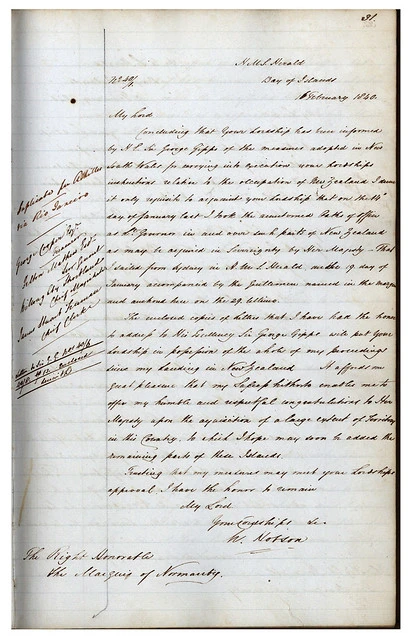 31.
H.M.S. Herald
Bay of Islands
February 1840.
No 40/1
My Lord
Concluding that Your Lordship has been informed
by H. E. Sir George Gipps of the measures adopted in New
South Wales for carrying into execution your Lordships
instructions relative to the occupation of New Zealand I deem
it only requisite to acquaint your Lordship that on the
day of January last I took the Oaths of Office
as Lt. Governor in and over such parts of New Zealand
as may be acquired in Sovereignty by Her Majesty - That
I sailed from Sydney in H. M. S. Herald on the 19 day of
January accompanied by the Gentlemen named in the margin
and anchored here on the 29 Ultimo.
The enclosed copies of letters that I have had the honor
to address to His Excellency Sir George Gipps will put your
Lordship in possession of the whole of my proceedings
since my landing in New Zealand It affords me
great pleasure that my success hitherto enables me to
offer my humble and respectful congratulations to Her
Majesty upon the acquisition of a large extent of Territory
in this Country, to which I hope may soon be added the
remaining parts of these Islands.
Trusting that my measures may meet your Lordships
approval I have the honor to remain
My Lord
Your Lordships &c.
W. Hobson
The Right Honorable
the Marquis of Normanby.
Duplicate per
via Rio Janeiro
George Cooper Esqr
Felton Mathew Esqr
James Stuart Freeman
Chief Clerk